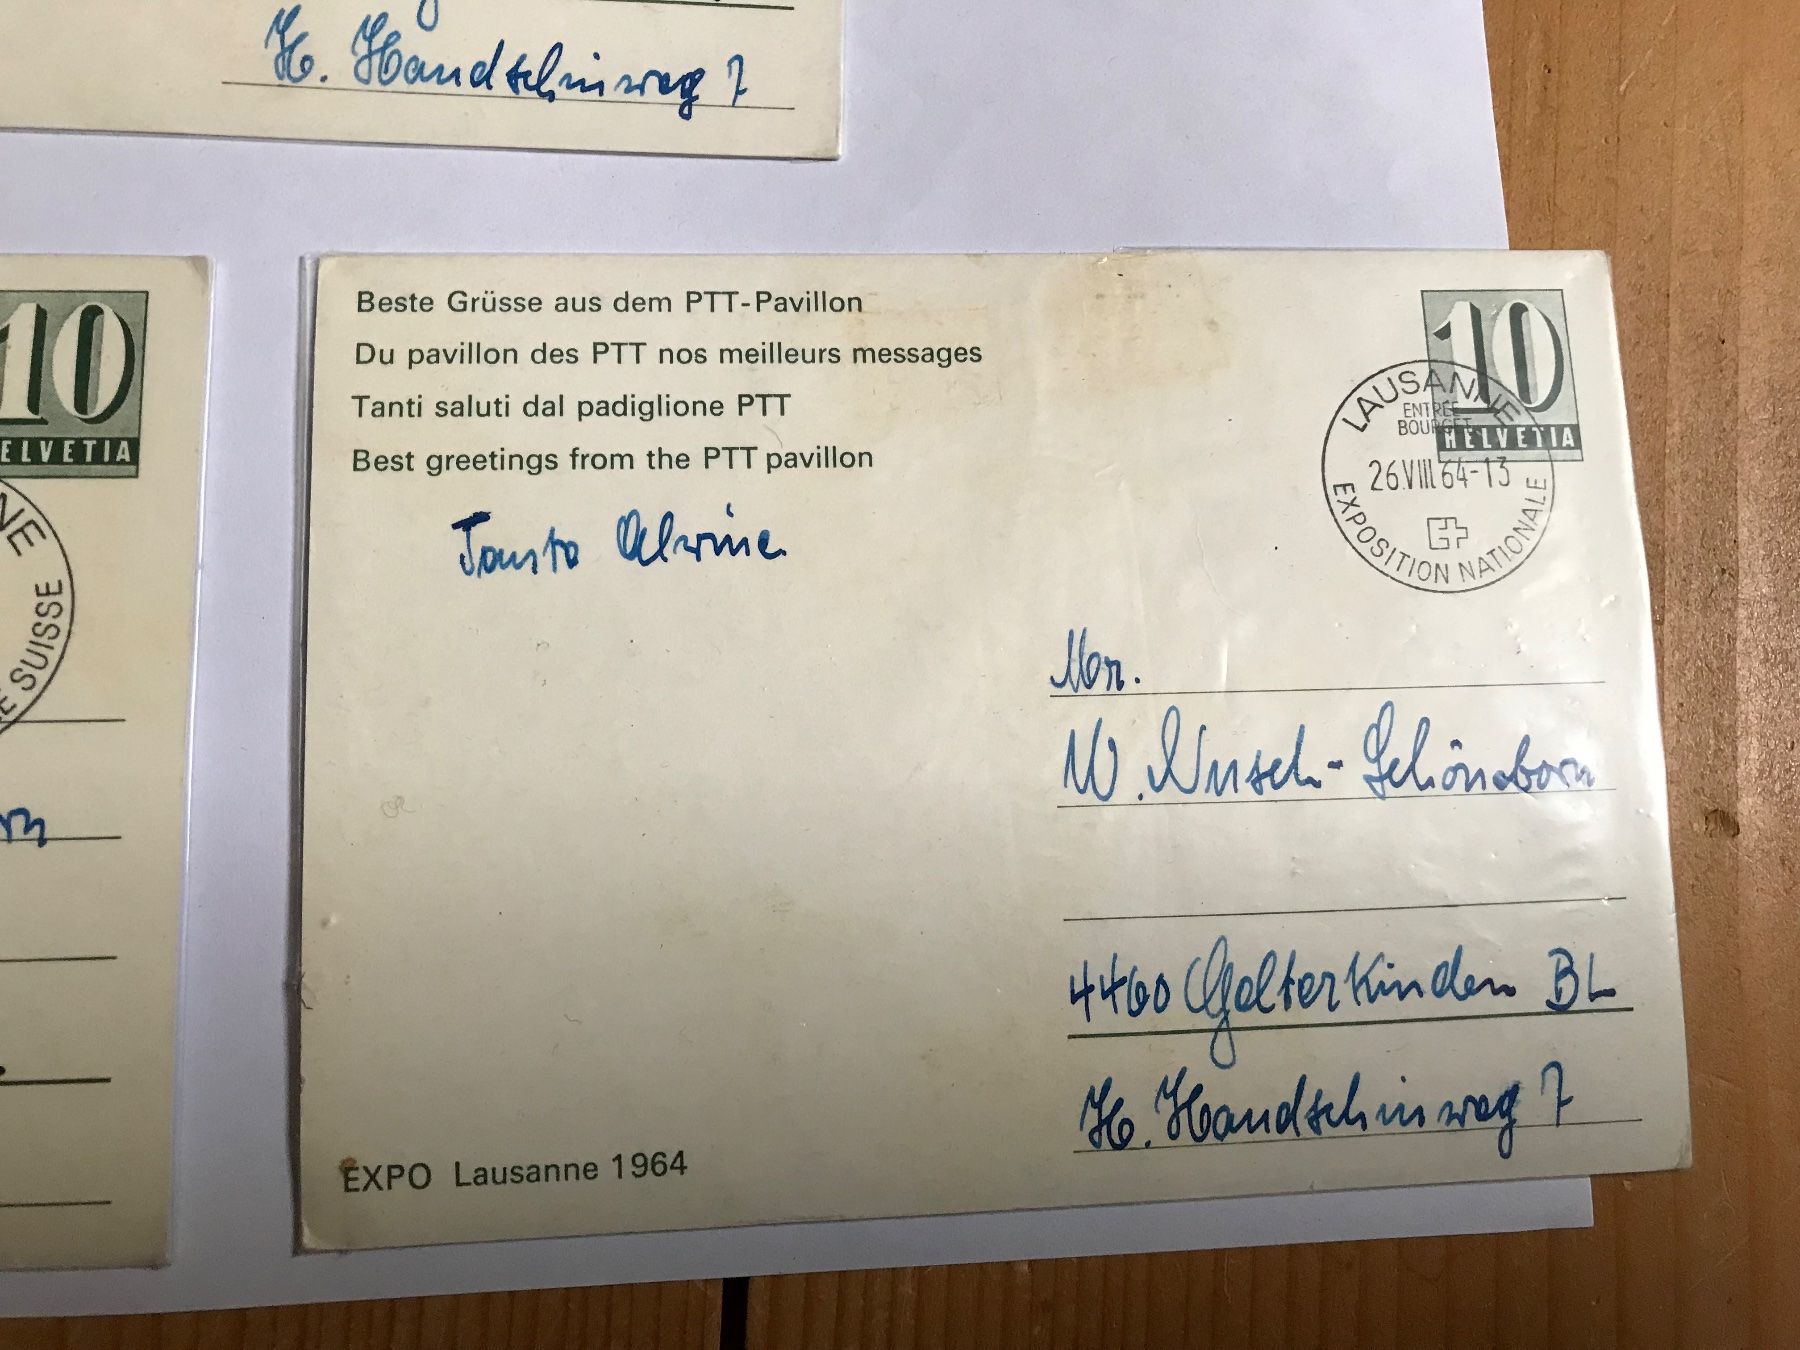 H. Handschinweg 7
10
HELVETIA
NE
SUISSE
Beste Grüsse aus dem PTT-Pavillon
Du pavillon des PTT nos meilleurs messages
Tanti saluti dal padiglione PTT
Best greetings from the PTT pavillon
Alwine
10
HELVETIA
LAUSANNE
ENTRÉE
BOURGET
26.VIII.64-13
EXPOSITION NATIONALE
Mr.
W. Nusch-Schönoborn
4460 Gelterkinden BL
H. Handschinweg 7
EXPO Lausanne 1964